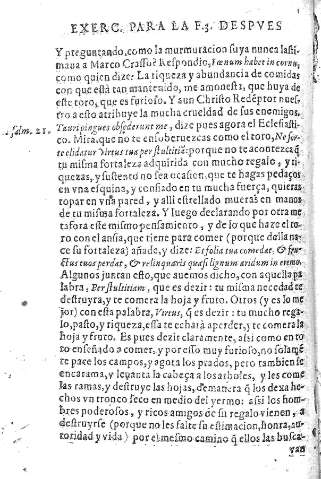 EXERC. PARA LA F.3. DESPVES
Y preguntando, como la murmuracion suya nunca lasti-
maua a Marco Crasso? Respondio, Fœnum habet in cornu,
como quien dize: La riqueza y abundancia de comidas
con que està tan mantenido, me amonesta, que huya de
este toro, que es furioso. Y aun Christo Redẽptor nues-
tro a esto atribuye la mucha crueldad de sus enemigos.
Psalm. 21. Tauri pingues obsederunt me, dize pues agora el Eclesiasti-
co. Mira, que no te ensoberuezcas como el toro, Ne for-
te elidatur virtus tua per stultitiã: porque no te acontezca q̃
tu misma fortaleza adquirida con mucho regalo, y ri-
quezas, y sustento no sea ocasion, que te hagas pedaços
en vna esquina, y confiado en tu mucha fuerça, quieras
topar en vna pared, y alli estrellado mueras en manos
de tu misma fortaleza. Y luego declarando por otra me
tafora este mismo pensamiento, y de lo que haze el to-
ro con el ansia, que tiene para comer (porque della na-
ce su fortaleza) añade, y dize: Et folia tua comedat, & fru-
ctus tuos perdat, & relinquaris quasi lignum aridum in eremo.
Algunos juntan esto, que auemos dicho, con aquella pa
labra, Per stultitiam, que es dezir: tu misma necedad te
destruyra, y te comera la hoja y fruto. Otros (y es lo me
jor) con esta palabra, Virtus, q̃ es dezir: tu mucho rega-
lo, pasto, y riqueza, essa te echarà a perder, y te comera la
hoja y fruto. Es pues dezir claramente, assi como en to
ro enseñado a comer, y por esso muy furioso, no solamẽ
te pace los campos, y agota los prados, pero tambien se
encarama, y leuanta la cabeça a los arboles, y les come
las ramas, y destruye las hojas, de manera q̃ los dexa he-
chos vn tronco seco en medio del yermo: assi los hom-
bres poderosos, y ricos amigos de su regalo vienen, a
destruyrse (porque no les falte su estimacion, honra, au-
toridad y vida) por el mismo camino q̃ ellos las busca-
uan